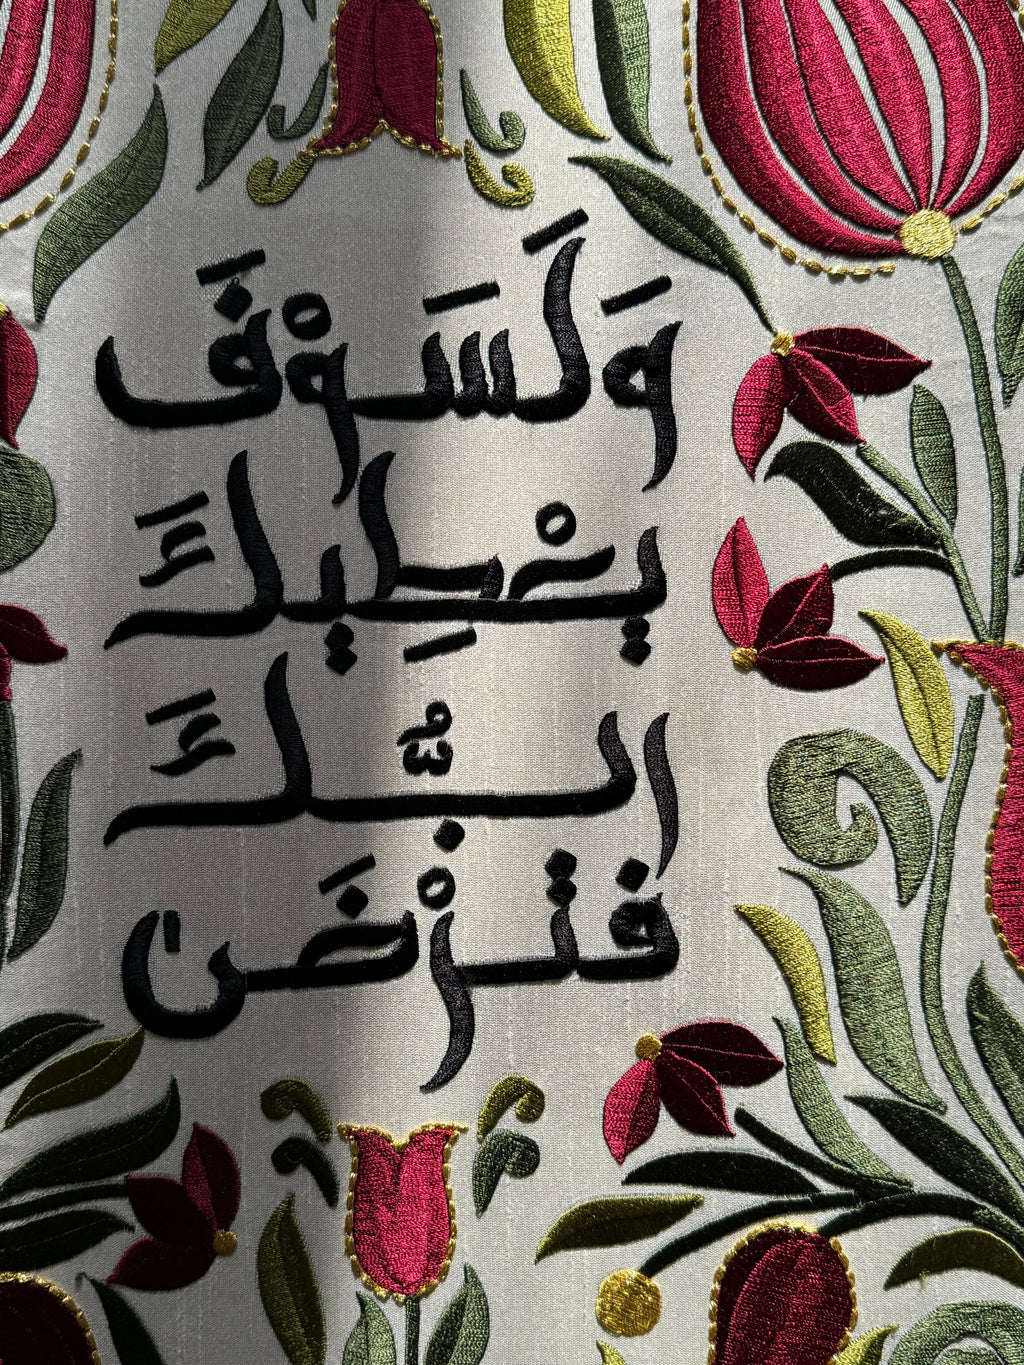 وَلَسَوْفَ
يعْطِيكَ
ربُّكَ
فترْضَىٰ